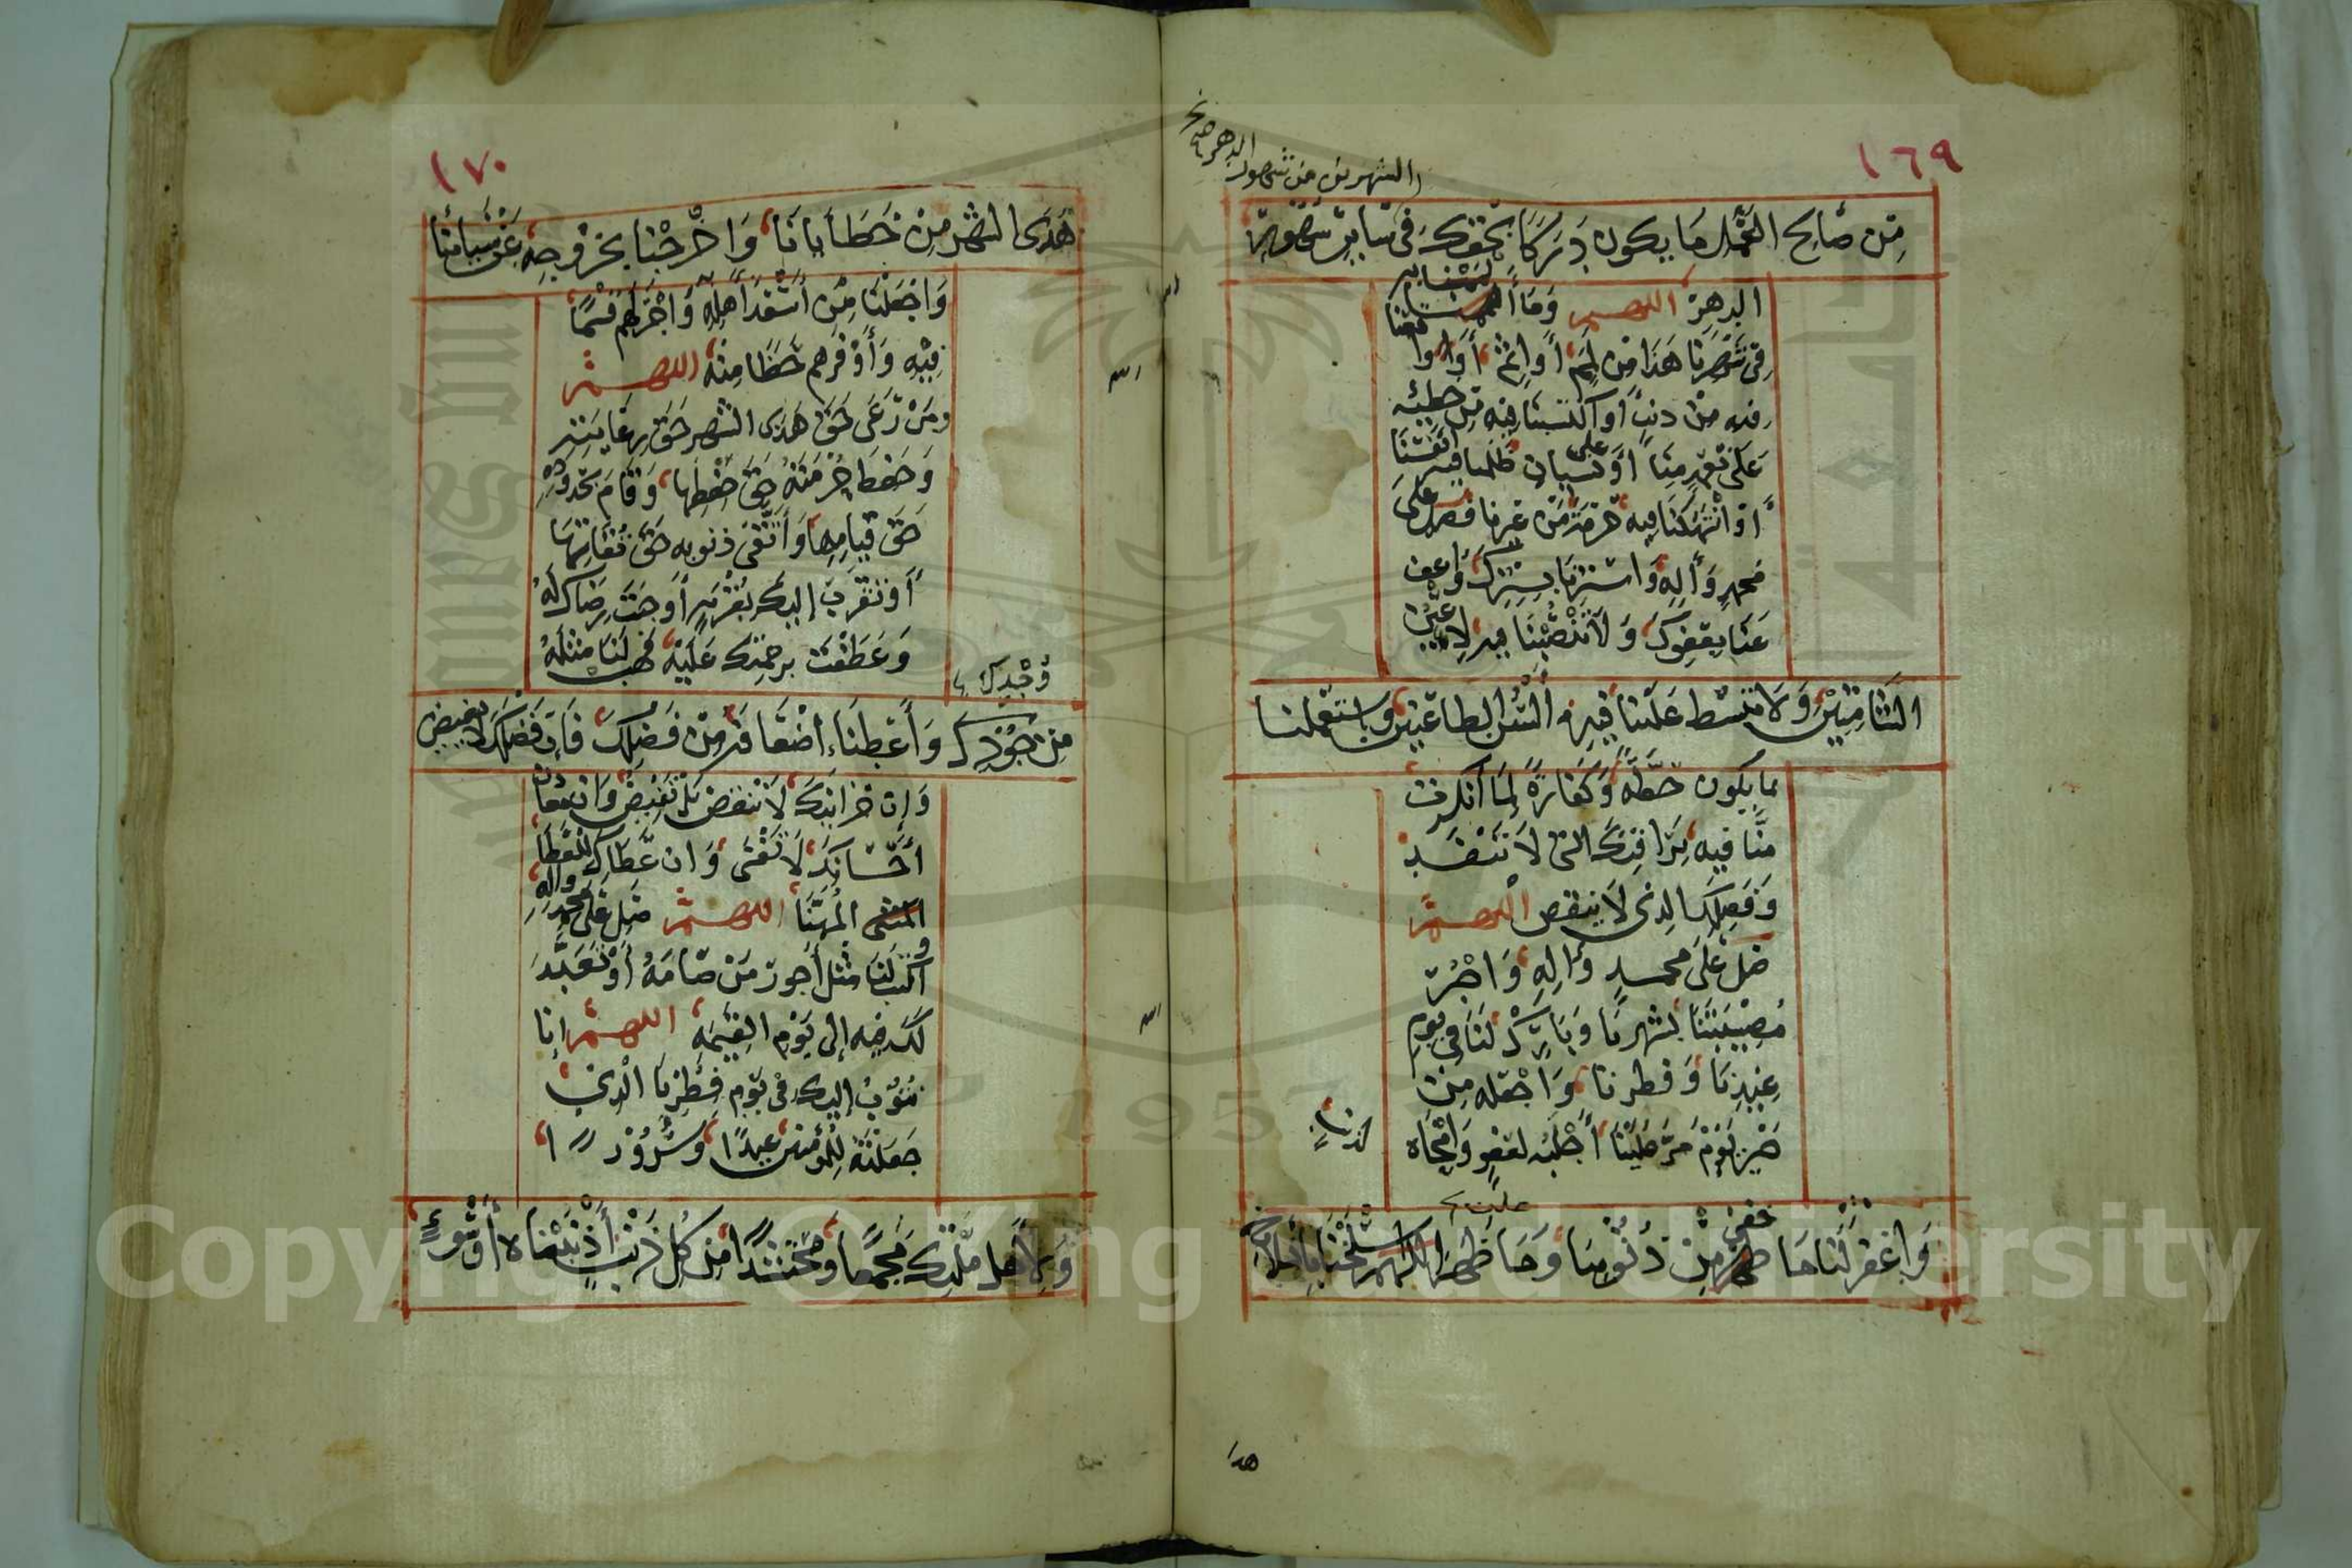 ١٦٩
الشهرين من شهور الدهر صح
مِن صَالحِ العَمَلِ مَا يكون دَرَكًا بحَقِّكَ في سَايرِ شهور
الدهرِ اللهم وَمَا ألممنا به
في شَهرِنا هَذَا مِن لمَم أو إثم أو
فيه من ذنبٍ أو اكتسبنا فيه من خطيئه
عَلى تعَمدٍ مِنّا أو على نسيان ظلمنا فيه أنفسنا
أو انتَهَكنَا فيه حُرمَةً مِن غيرنا فصل على
محمدٍ وَآلِهِ وَاستُرنا بسِترِكَ وَاعف
عَنّا بِعَفوِكَ وَلا تَنصِبنَا فيه لأعيُن
الشَّامِتِينَ وَلا تبسُط عَلَينَا فيه ألسُن الطاعنين واستعملنا
بما يكون حِطَّةً وَكَفارَةً لِمَا أنكرت
مِنَّا فيه بِرَافتِكَ التي لا تَنفَدُ
وَفَضلِكَ الذي لا ينقص اللهم
صَل عَلى محمد وَآلِهِ وَاجبُر
مُصِيبَتَنَا بشهرِنَا وَبَارِك لَنَا في يوم
عِيدِنَا وَفطرنا وَاجعَله مِن
خَيرِ يَومٍ مَرَّ عَلَيْنَا أجلَبه لعفوٍ وَأمحَاه
لذنبٍ
وَاغفر لَنَا مَا خفي مِن ذُنُوبِنَا وَمَا ظهر اللهم اسلَخنَا بانسلاخ
هذا
١٧٠
هَذَى الشهر مِن خَطَايَانَا وَاخرِجنا بخُرُوجِهِ عَن سَيِّئاتنا
وَاجعَلنَا مِن أسعَد أهلِهِ وَاجزَلهم قسمًا
فِيهِ وَأوفرهم حَظا مِنه اللهم
ومَن رَعَى حَقَّ هَذى الشهر حَقَّ رعَايَتِهِ
وَحفظ حُرمَتَهُ حَقَّ حِفظِهَا وَقَامَ بحُدودِهِ
حَقَّ قيَامِهَا وَاتَّقَى ذنوبه حَقَّ تُقَاتِهَا
أو تقرب إليك بقُربَةٍ أوجَبَت رِضَاك لَهُ
وَعَطَفَت برحمتك عَلَيه فهَب لَنَا مثلَهُ
وُجدِك
مِن جودك وَأعطِنَا أضعَافَه مِن فَضلِكَ فَإن فَضلَكَ لا يغيض
وَإن خزائنَكَ لا تنقص بل تفيض وَان معادن
إحسَانِكَ لا تَفنَى وَان عَطَاءك للعطا
المُهَنَّا اللهم صَلِّ عَلى محمد وآلهِ
واكتب لَنَا مثل أجور مَن صَامَهُ أو تَعَبَّدَ
لَكَ فيه إلى يَوم القيَمه اللهم إنا
نتُوبُ إليك في يَوم فِطرِنا الذي
جَعَلتَهُ لِلمُؤمنين عِيدًا وَسُرُورًا
وَلأهل مِلَّتِكَ مَجمَعًا وَمُحتَشَدًا مِن كُل ذَنبٍ أذنبَنَاه أو سُوءٍ